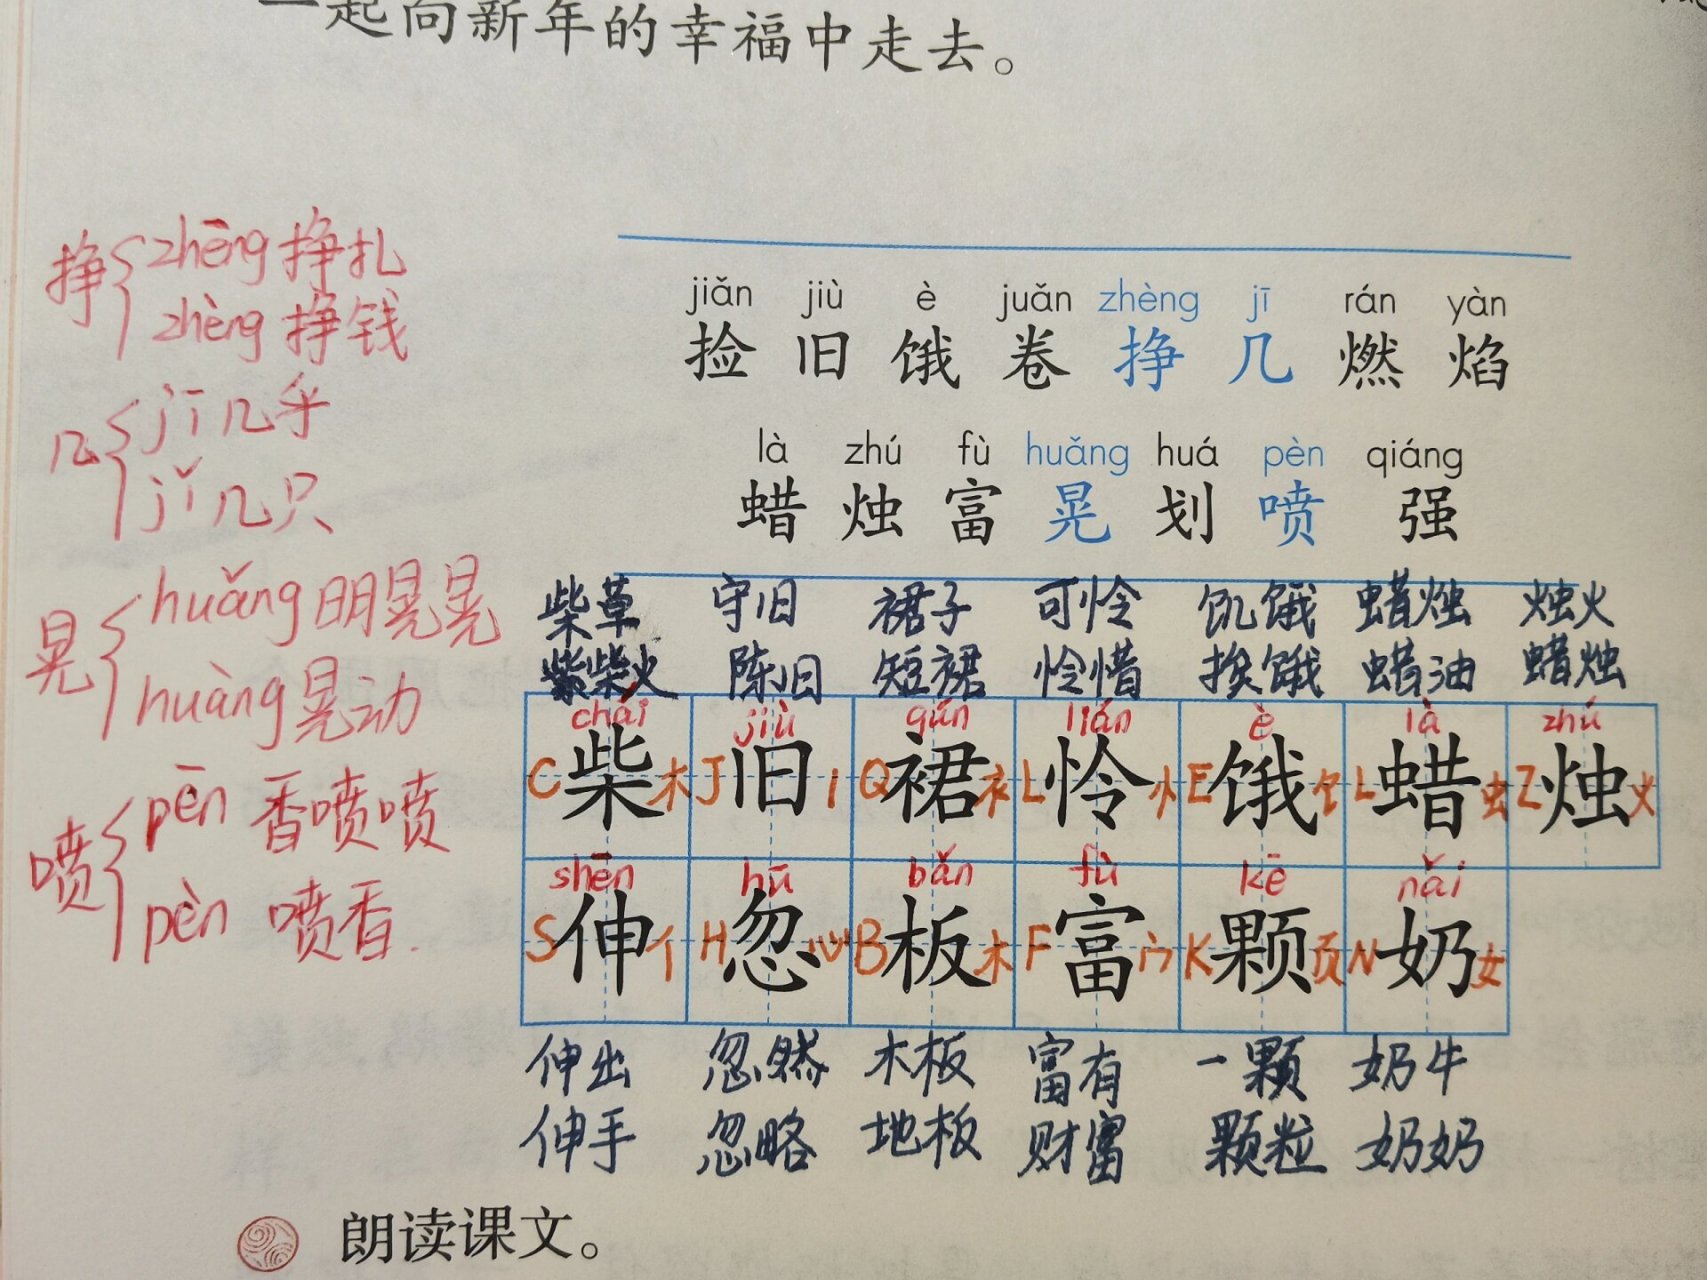 一起向新年的幸福中走去。
挣 zhēng 挣扎
zhèng 挣钱
几 jī 几乎
jǐ 几只
晃 huǎng 明晃晃
huàng 晃动
喷 pēn 香喷喷
pèn 喷香.
jiǎn jiù è juǎn zhèng jī rán yàn
捡 旧 饿 卷 挣 几 燃 焰
là zhú fù huǎng huá pèn qiáng
蜡 烛 富 晃 划 喷 强
柴草 守旧 裙子 可怜 饥饿 蜡烛 烛火
柴火 陈旧 短裙 怜惜 挨饿 蜡油 蜡烛
chái jiù qún lián è là zhú
C柴木 J旧丨 Q裙衤 L怜忄 E饿饣 L蜡虫 Z烛火
shēn hū bǎn fù kē nǎi
S伸亻 H忽心 B板木 F富宀 K颗页 N奶女
伸出 忽然 木板 富有 一颗 奶牛
伸手 忽略 地板 财富 颗粒 奶奶
朗读课文。